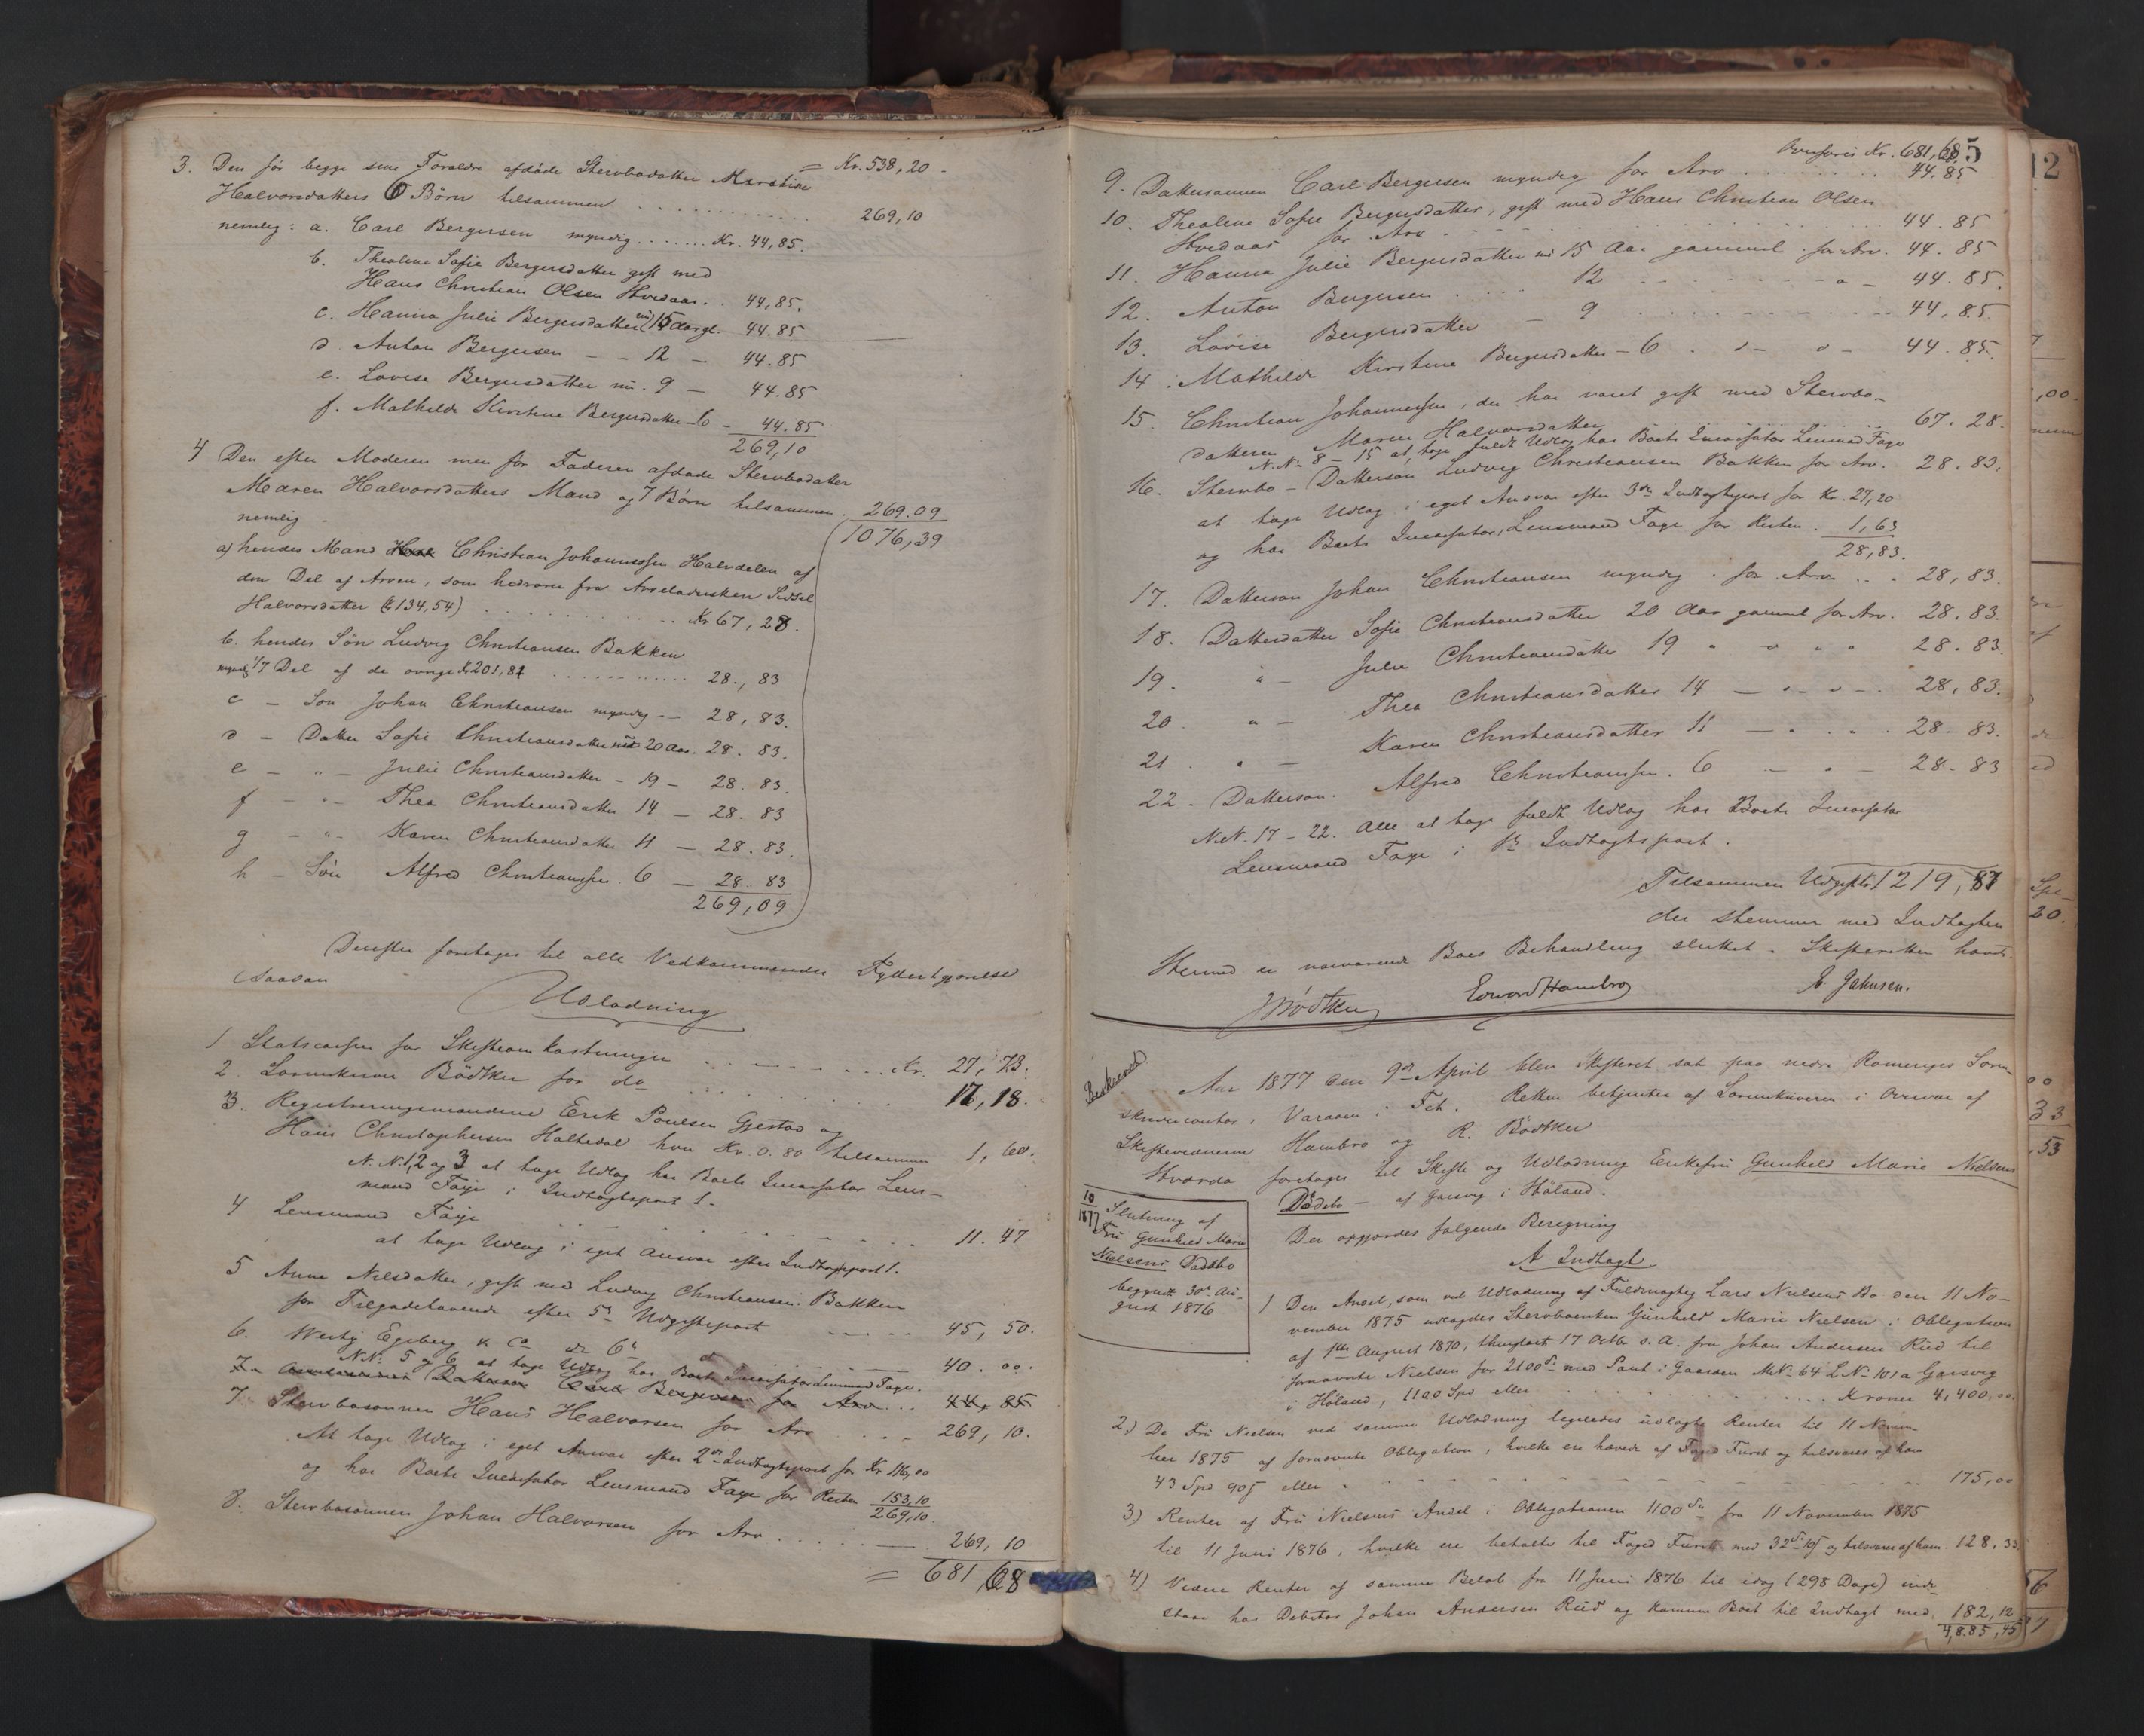 = Kr. 538,20.
3. Den før begge sine Forældre afdøde Stervbodatter Kirstine
Halvorsdatters 6 Børn tilsammen . . . . . . . . . . . . 269,10
nemlig: a. Carl Bergersen myndig . . . . . . Kr. 44,85.
b. Thealine Sofie Bergersdatter gift med
Hans Christian Olsen Hvedaas . . 44,85.
c. Hanna Julie Bergersdatter nu 15 Aar gl. 44.85
d. Anton Bergersen - - 12 - 44.85
e. Lovise Bergersdatter nu. 9 - 44.85
f. Mathilde Kirstine Bergersdatter - 6 - 44.85
269,10
4 Den efter Moderen men før Faderen afdøde Stervbodatter
Maren Halvorsdatters Mand og 7 Børn tilsammen . 269.09
nemlig - 1076,39
a) hendes Mand Christian Johannessen Halvdelen af
den Del af Arven, som hidrører fra Arveladersken Sidsel
Halvorsdatter (134,54) . . . . . . . . . . Kr 67,28.
b. hendes Søn Ludvig Christiansen Bakken
myndig 1/7 Del af de øvrige Kr 201,81 . . . . . . . . . . . 28., 83
c - Søn Johan Christiansen myndig - - 28, 83.
d - Datter Sofie Christiansdatter nu 20 Aar. 28. 83.
e - " - Julie Christiansdatter - 19 - 28. 83.
f - " - Thea Christiansdatter 14 - 28. 83
g - " - Karen Christiansdatter 11 - 28. 83.
h - Søn Alfred Christiansen. 6 - 28. 83
269,09
Derefter foretoges til alle Vedkommendes Fyldestgjørelse
saadan
Udlodning
1 Statscassen for Skifteomkostninger . . . . . . . . Kr. 27, 73.
2. Sorenskriver Bødtker for do . . . . . . . . . . 17, 18.
3. Registreringsmændene Erik Poulsen Gjestad og
Hans Christophersen Haltedal hver Kr. 0. 80 tilsammen 1, 60.
N. N. 1, 2 og 3 at tage Udlæg hos Boets Incassator Lens-
mand Faye i Indtægtspost 1.
4 Lensmand Faye . . . . . . . . . . . . 11. 47
at tage Udlæg i eget Ansvar efter Indtægtspost 1.
5 Anne Nilsdatter, gift med Ludvig Christiansen Bakken
for Tilgodehavende efter 5te Udgiftspost . . . . . 45, 50.
6. Westye Egeberg & Co do 6te 40. 00.
NN. 5 og 6 at tage Udlæg hos Boets Incassator Lensmand Faye.
7. Dattersøn Carl Bergersen for Arv . . . 44, 85
7. Stervbosønnen Hans Halvorsen for Arv . . . . 269, 10.
At tage Udlæg i eget Ansvar efter 2den Indtægtspost for Kr. 116,00
og hos Boets Incassator Lensmand Faye for Resten 153,10
269,10.
8. Stervbosønnen Johan Halvorsen for Arv . . . . . 269, 10
= 681,68
5
Overføres Kr. 681,68.
9. Dattersønnen Carl Bergersen myndig for Arv . . . . . . . . 44.85
10. Thealine Sofie Bergersdatter, gift med Hans Christian Olsen
Hvedaas for Arv . . . . . . . . . . . . . 44. 85
11. Hanna Julie Bergersdatter nu 15 Aar gammel for Arv. 44. 85
12. Anton Bergersen . . . . 12 . . . . . . . 44. 85.
13. Lovise Bergersdatter - 9 . . . . . . . . 44, 85.
14. Mathilde Kirstine Bergersdatter - 6 . . . . 44. 85.
15. Christian Johannessen, der har været gift med Stervbo-
datteren Maren Halvorsdatter . . . . . . 67. 28.
N. N. 8 - 15 at tage fuldt Udlæg hos Boets Incassator Lensmand Faye
16. Stervbo-Dattersøn Ludvig Christiansen Bakken for Arv. 28. 83.
at tage Udlæg i eget Ansvar efter 3die Indtægtspost for Kr. 27,20
og hos Boets Incassator, Lensmand Faye for Resten . 1,63
28,83.
17. Dattersøn Johan Christiansen myndig . for Arv . . . 28, 83.
18. Datterdatter Sofie Christiansdatter 20 Aar gammel for Arv. 28. 83.
19. " - Julie Christiansdatter 19 " " " " 28. 83.
20. " - Thea Christiansdatter 14 - " - " - . 28, 83.
21. " - Karen Christiansdatter 11 - . . . . 28. 83.
22. Dattersøn. Alfred Christiansen. 6 - " - 28. 83
N.N. 17 - 22. Alle at tage fuldt Udlæg hos Boets Incassator
Lensmand Faye i 1ste Indtægtspost.
Tilsammen Udgifter 1219, 87
der stemmer med Indtægten
Hermed er nærværende Boes Behandling sluttet. Skifteretten hævet
JBødtker Edvard Hambro
Beskreved
Aar 1877 den 9de April blev Skifteret sat paa nedre Romeriges Soren-
skrivercontor, Varaaen i Fet. Retten betjentes af Sorenskriveren i Overvær af
Skiftevidnerne Hambro og R. Bødtker
Hvorda foretoges til Skifte og Udlodning Enkefru Gunhild Marie Nielsens
Dødsbo - af Garsvig i Høland.
10/1877 Slutning af
Fru Gunhild Marie
Nielsens Dødsbo
begyndt 30te Au-
gust 1876
Der opgjordes følgende Beregning
A Indtægt
1 Den Andel, som ved Udlodning af Fuldmægtig Lars Nielsens Bo den 11 No-
vember 1875 udlagdes Stervboenken Gunhild Marie Nielsen i Obligation
af 1ste August 1870, thinglæst 17 Octbr s. A. fra Johan Andersen Riid til
fornævnte Nielsen for 2100 Sp. med Pant i Gaarden M.No 64 L.No 101a Garsvig
i Høland, 1100 Spd eller . . . . . . . . . . . . . Kroner 4,400,00
2.) De Fru Nielsen ved samme Udlodning ligeledes udlagte Renter til 11 Novem-
ber 1875 af fornævnte Obligation, hvilke ere hævede af Foged Furst og tilsvares af ham
43 Spd 90 s eller . . . . . . . . . . . . . 175,00
3) Renter af Fru Nielsens Andel i Obligationen 1100 Sp. fra 11 November 1875
til 11 Juni 1876, hvilke ere betalte til Foged Furst med 32 Sp 10 s og tilsvares af ham. 128, 33
4) Videre Renter af samme Beløb fra 11 Juni 1876 til idag (298 Dage) inde-
staar hos Debitor Johan Andersen Riid og kommer Boet til Indtægt med. 182,12
4,885,45